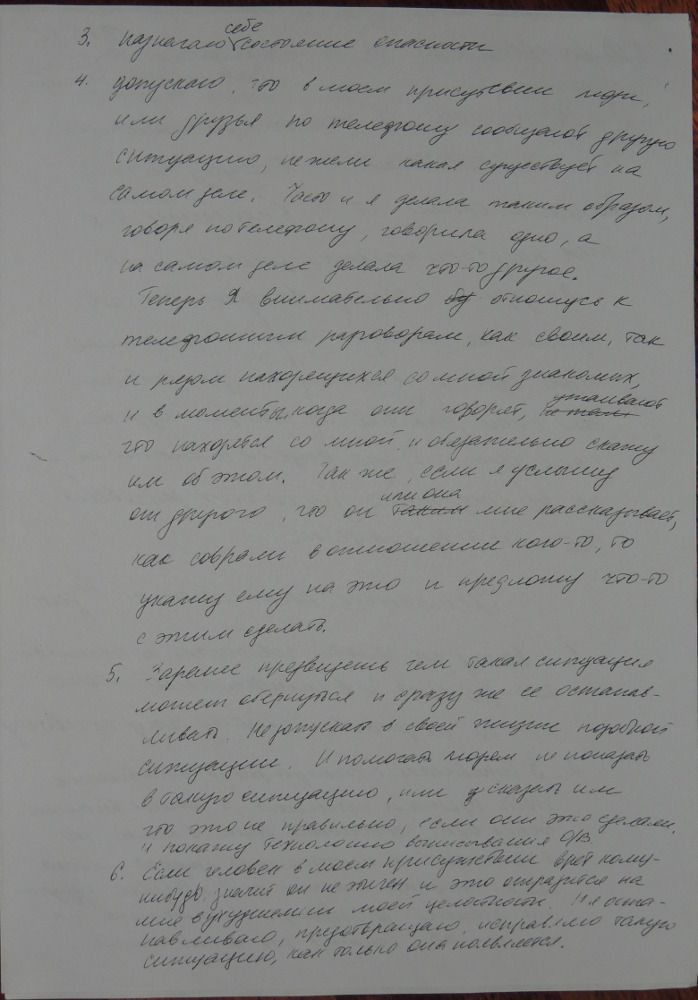 3. назначаю себе состояние опасности
4. допускаю, что в моем присутствии люди,
или друзья по телефону сообщают другую
ситуацию, нежели какая существует на
самом деле. Часто и я делала таким образом,
говоря по телефону, говорила одно, а
на самом деле делала что-то другое.
Теперь Я внимательно отношусь к
телефонным разговорам, как своим, так
и рядом находящихся со мной знакомых,
и в моменты, когда они говорят, утаивают
что находятся со мной и обязательно скажу
им об этом. Так же, если я услышу
от другого, что он или она мне рассказывает,
как соврали в отношении кого-то, то
укажу ему на это и предложу что-то
с этим сделать.
5. Заранее предвидеть чем такая ситуация
может обернуться и сразу же ее останав-
ливать. Не допускать в своей жизни подобной
ситуации. И помогать людям не попадать
в такую ситуацию, или сказать им
что это не правильно, если они это сделали,
и покажу технологию выписывания О/В
6. Если человек в моем присутствии врет кому-
нибудь, значит он не этичен и это отразится на
мне в ухудшении моей целостности. Я оста-
навливаю, предотвращаю, исправляю такую
ситуацию, как только она появляется.